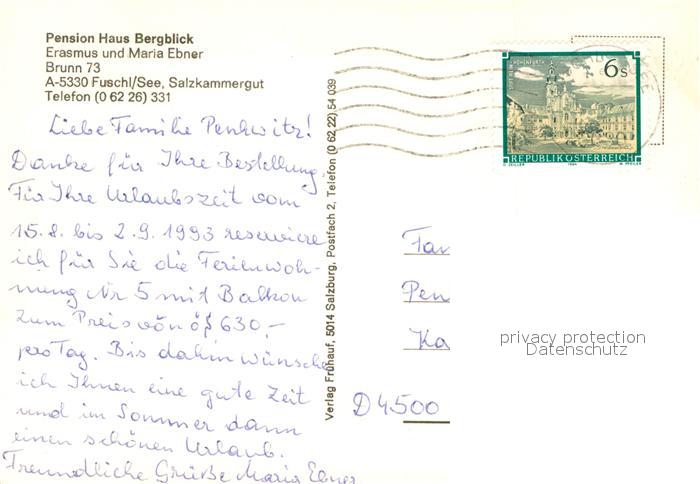 Pension Haus Bergblick
Erasmus und Maria Ebner
Brunn 73
A-5330 Fuschl/See, Salzkammergut
Telefon (0 62 26) 331
Liebe Familie Penkwitz!
Danke für Ihre Bestellung.
Für Ihre Urlaubszeit vom
15.8. bis 2.9.1993 reserviere
ich für Sie die Ferienwoh-
nung Nr 5 mit Balkon
zum Preis von öS 630,-
pro Tag. Bis dahin wünsche
ich Ihnen eine gute Zeit
und im Sommer dann
einen schönen Urlaub.
Freundliche Grüße Maria Ebner
Verlag Frühauf, 5014 Salzburg, Postfach 2, Telefon (0 62 22) 54 039
6s
REPUBLIK ÖSTERREICH
Fam
Pen
Ka
D 4500
privacy protection
Datenschutz